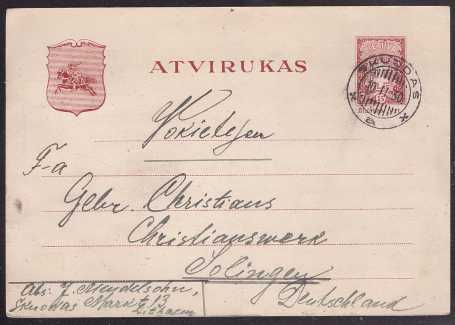 ATVIRUKAS
SKUODAS
a
Vokietijon
F-a
Gebr. Christians
Christianswerk
Solingen
Deutschland
Abs. J. Mendelsohn,
Skuodas Markt 13
Lithauen